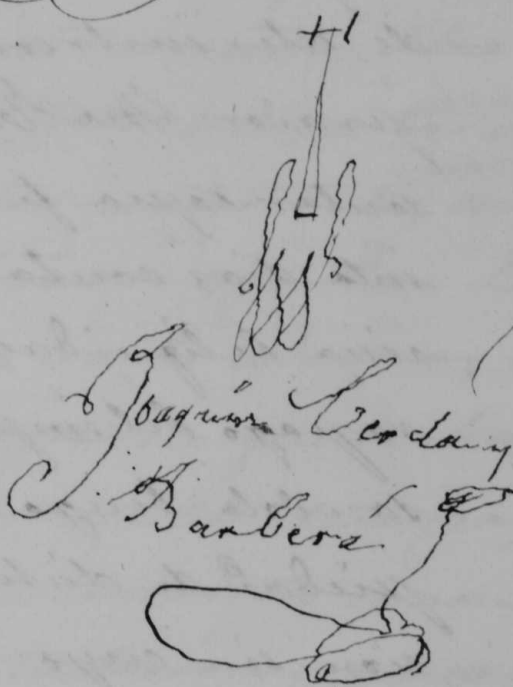 Joaquin Cerdá y
Barbera